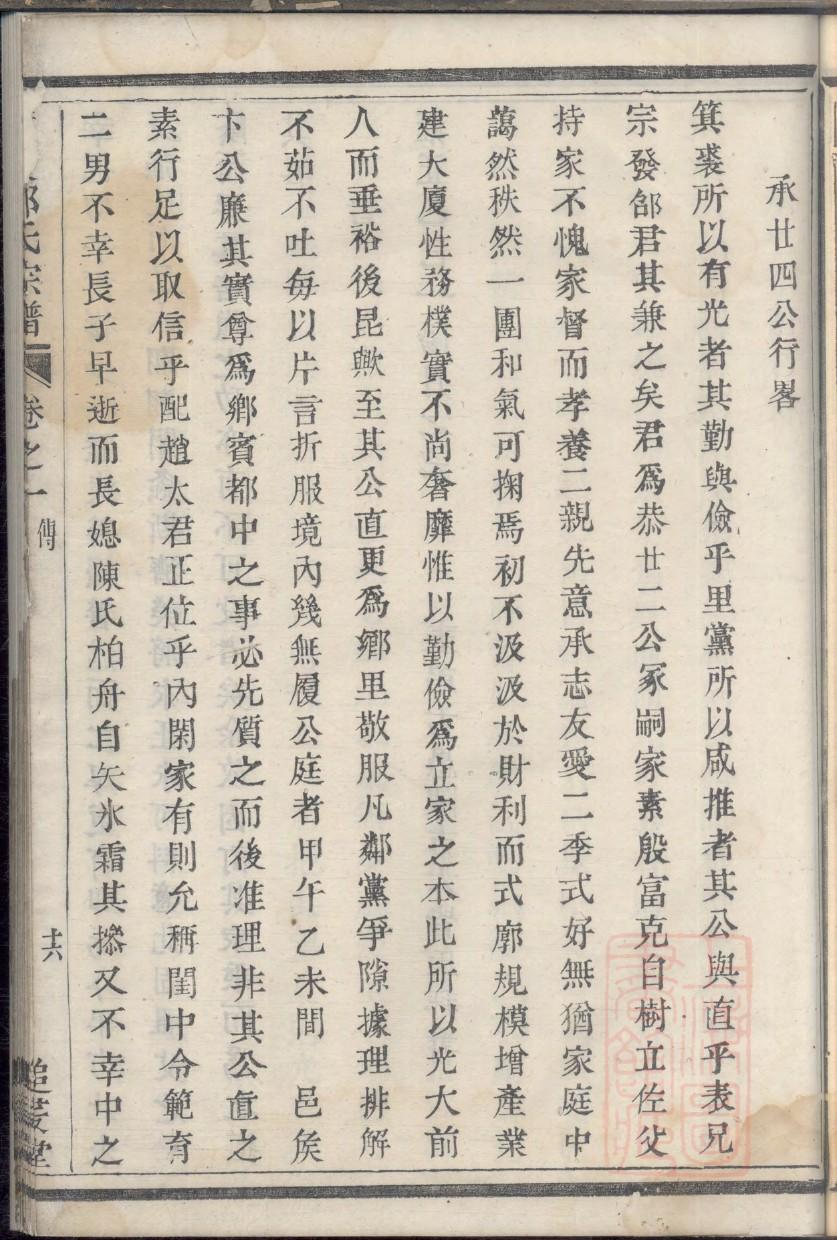 承廿四公行畧
箕裘所以有光者其勤與儉乎里黨所以咸推者其公與直乎表兄
宗發郃君其兼之矣君爲恭廿二公冢嗣家素殷富克自樹立佐父
持家不愧家督而孝養二親先意承志友愛二季式好無猶家庭中
藹然秩然一團和氣可掬焉初不汲汲於財利而式廓規模增產業
建大廈性務樸實不尚奢靡惟以勤儉爲立家之本此所以光大前
人而垂裕後昆歟至其公直更爲鄉里敬服凡鄰黨爭隙據理排解
不茹不吐每以片言折服境內幾無履公庭者甲午乙未間 邑侯
卞公廉其實尊爲鄉賓都中之事必先質之而後准理非其公直之
素行足以取信乎配趙太君正位乎內閑家有則允稱閨中令範育
二男不幸長子早逝而長媳陳氏柏舟自矢氷霜其操又不幸中之
氏宗譜 卷之一 傳 十六 追慕堂